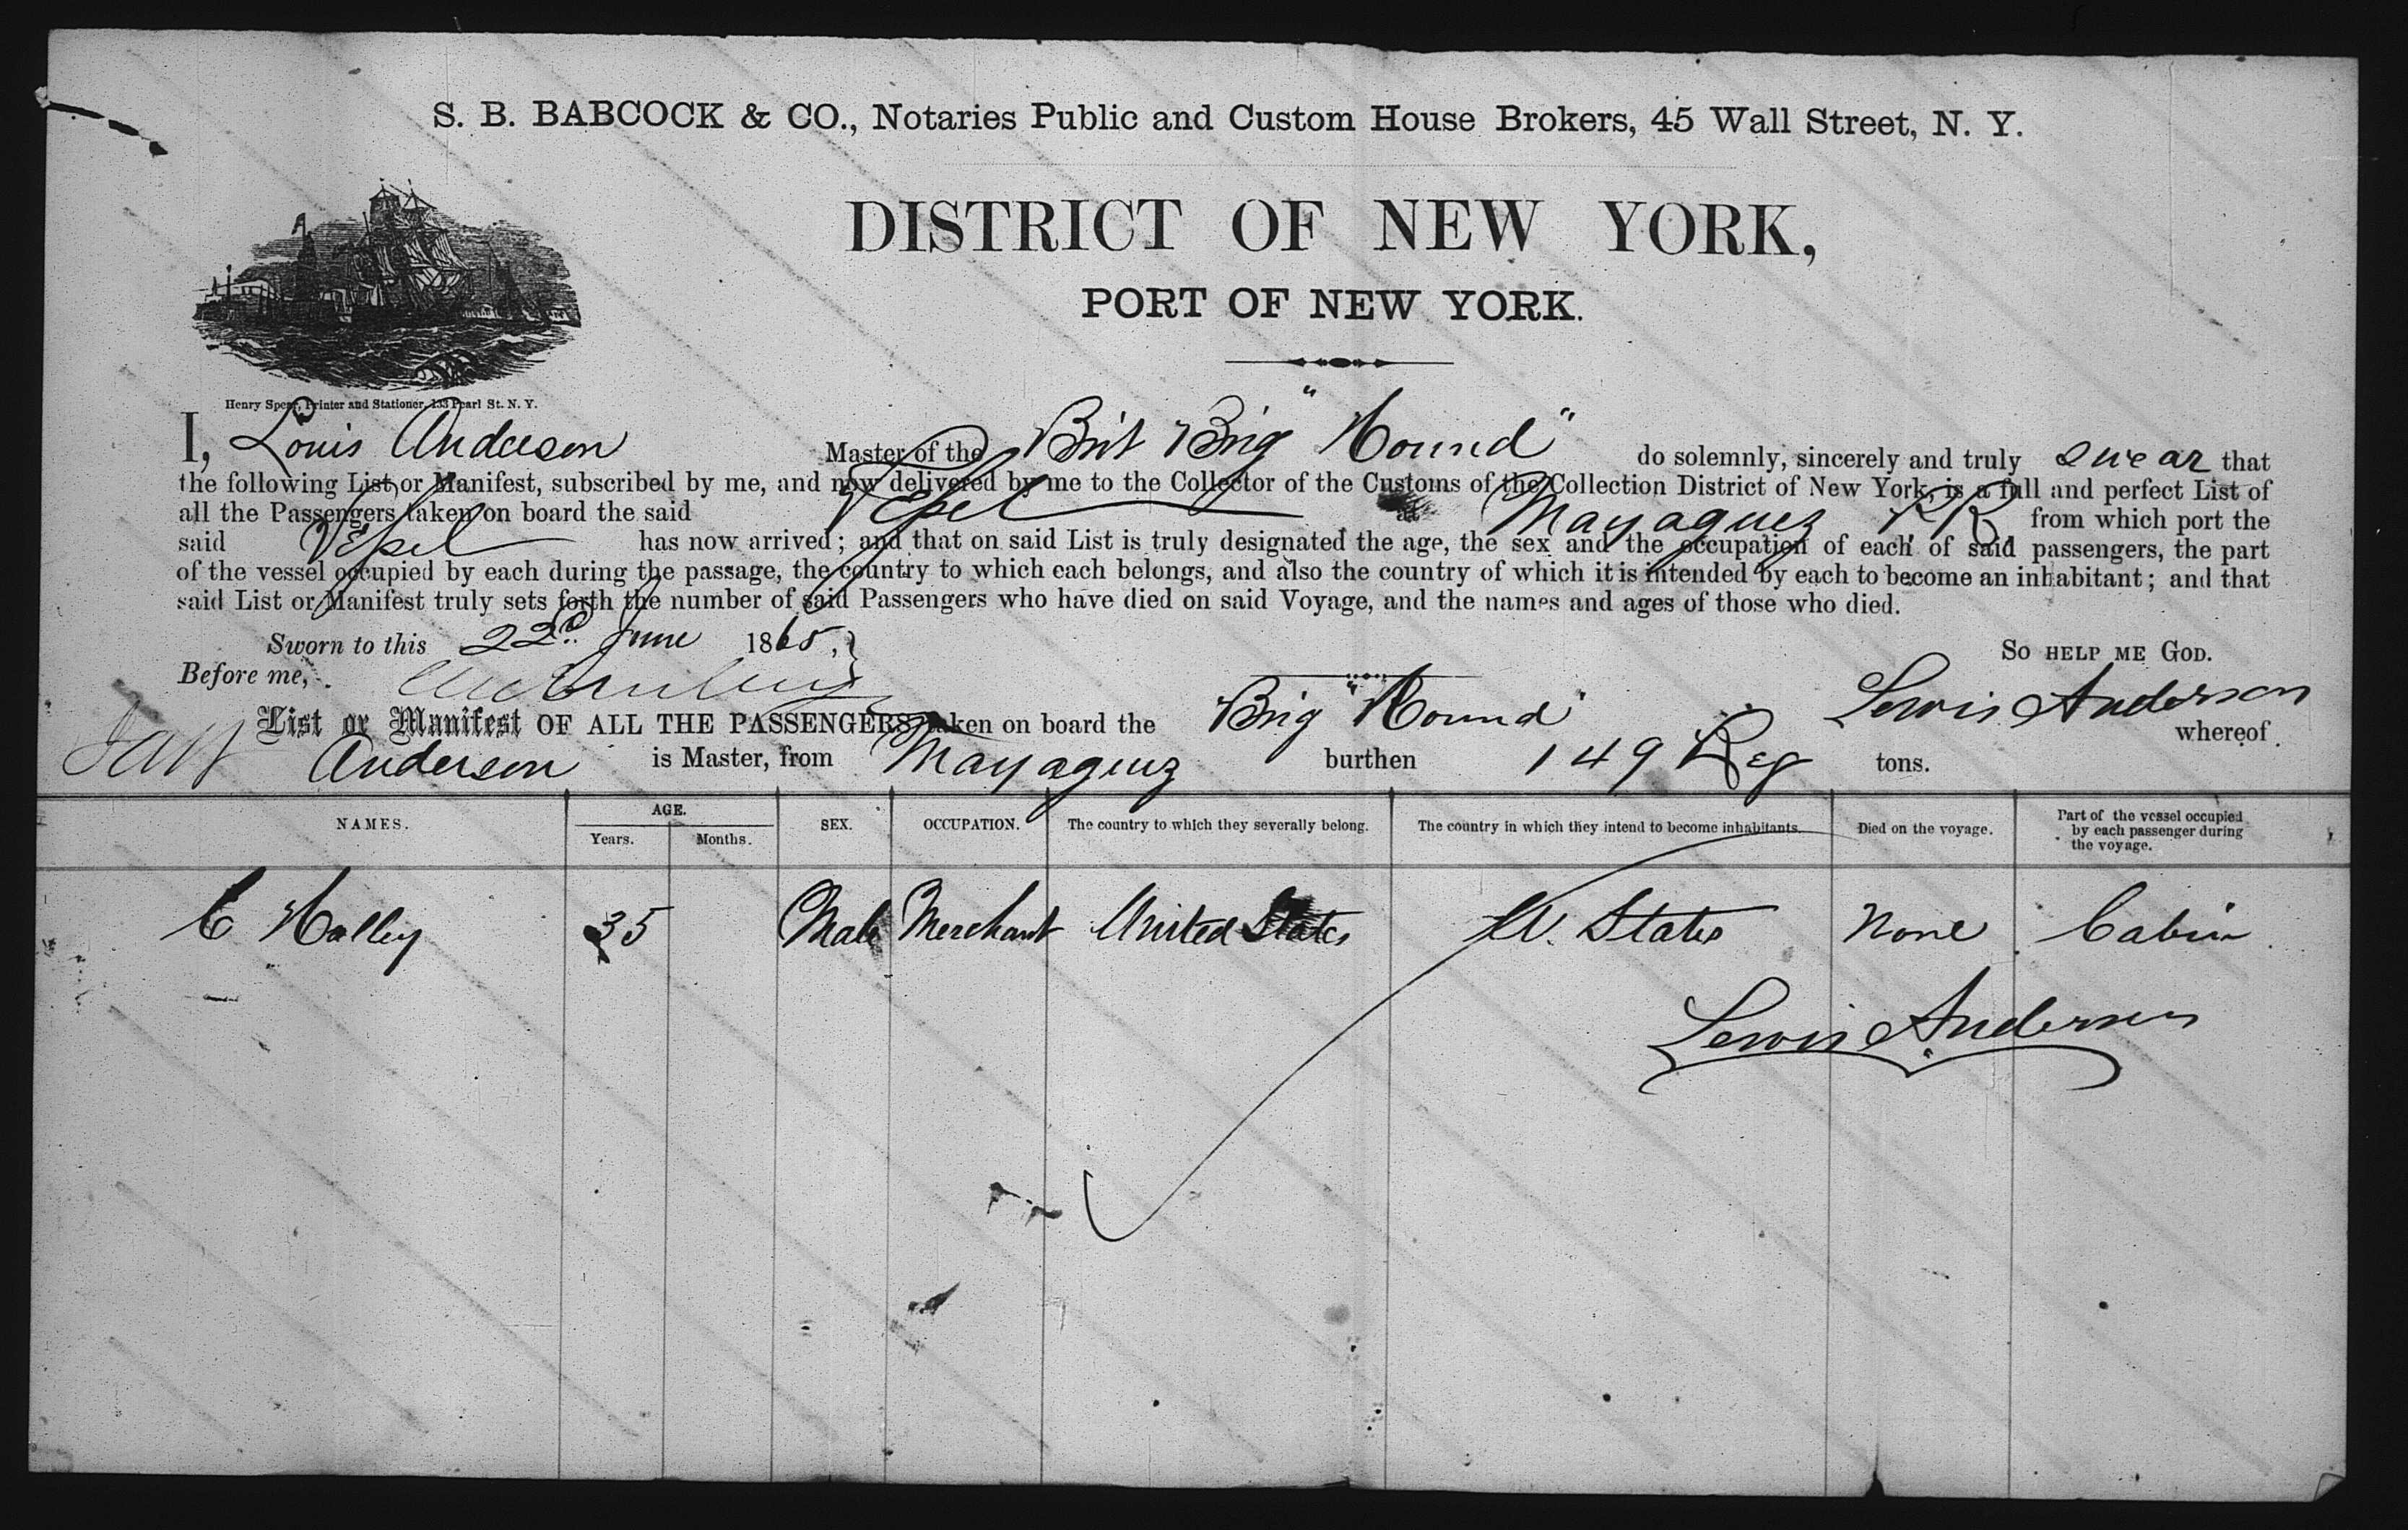 S. B. BABCOCK & CO., Notaries Public and Custom House Brokers, 45 Wall Street, N. Y.
DISTRICT OF NEW YORK,
PORT OF NEW YORK.
Henry Spear, Printer and Stationer, 133 Pearl St. N. Y.
I, Louis Anderson Master of the Brit Brig "Hound" do solemnly, sincerely and truly swear that
the following List or Manifest, subscribed by me, and now delivered by me to the Collector of the Customs of the Collection District of New York, is a full and perfect List of
all the Passengers taken on board the said Vessel at Mayaguez P. R. from which port the
said Vessel has now arrived; and that on said List is truly designated the age, the sex and the occupation of each of said passengers, the part
of the vessel occupied by each during the passage, the country to which each belongs, and also the country of which it is intended by each to become an inhabitant; and that
said List or Manifest truly sets forth the number of said Passengers who have died on said Voyage, and the names and ages of those who died.
Sworn to this 22d June 1865, So HELP ME GOD.
Before me,
Lewis Anderson
List or Manifest OF ALL THE PASSENGERS taken on board the Brig "Hound" whereof
Anderson is Master, from Mayaguez burthen 149 Reg tons.
NAMES. AGE. Years. Months. SEX. OCCUPATION. The country to which they severally belong. The country in which they intend to become inhabitants. Died on the voyage. Part of the vessel occupied by each passenger during the voyage.
C Halley 35 Male Merchant United States U. States None Cabin
Lewis Anderson